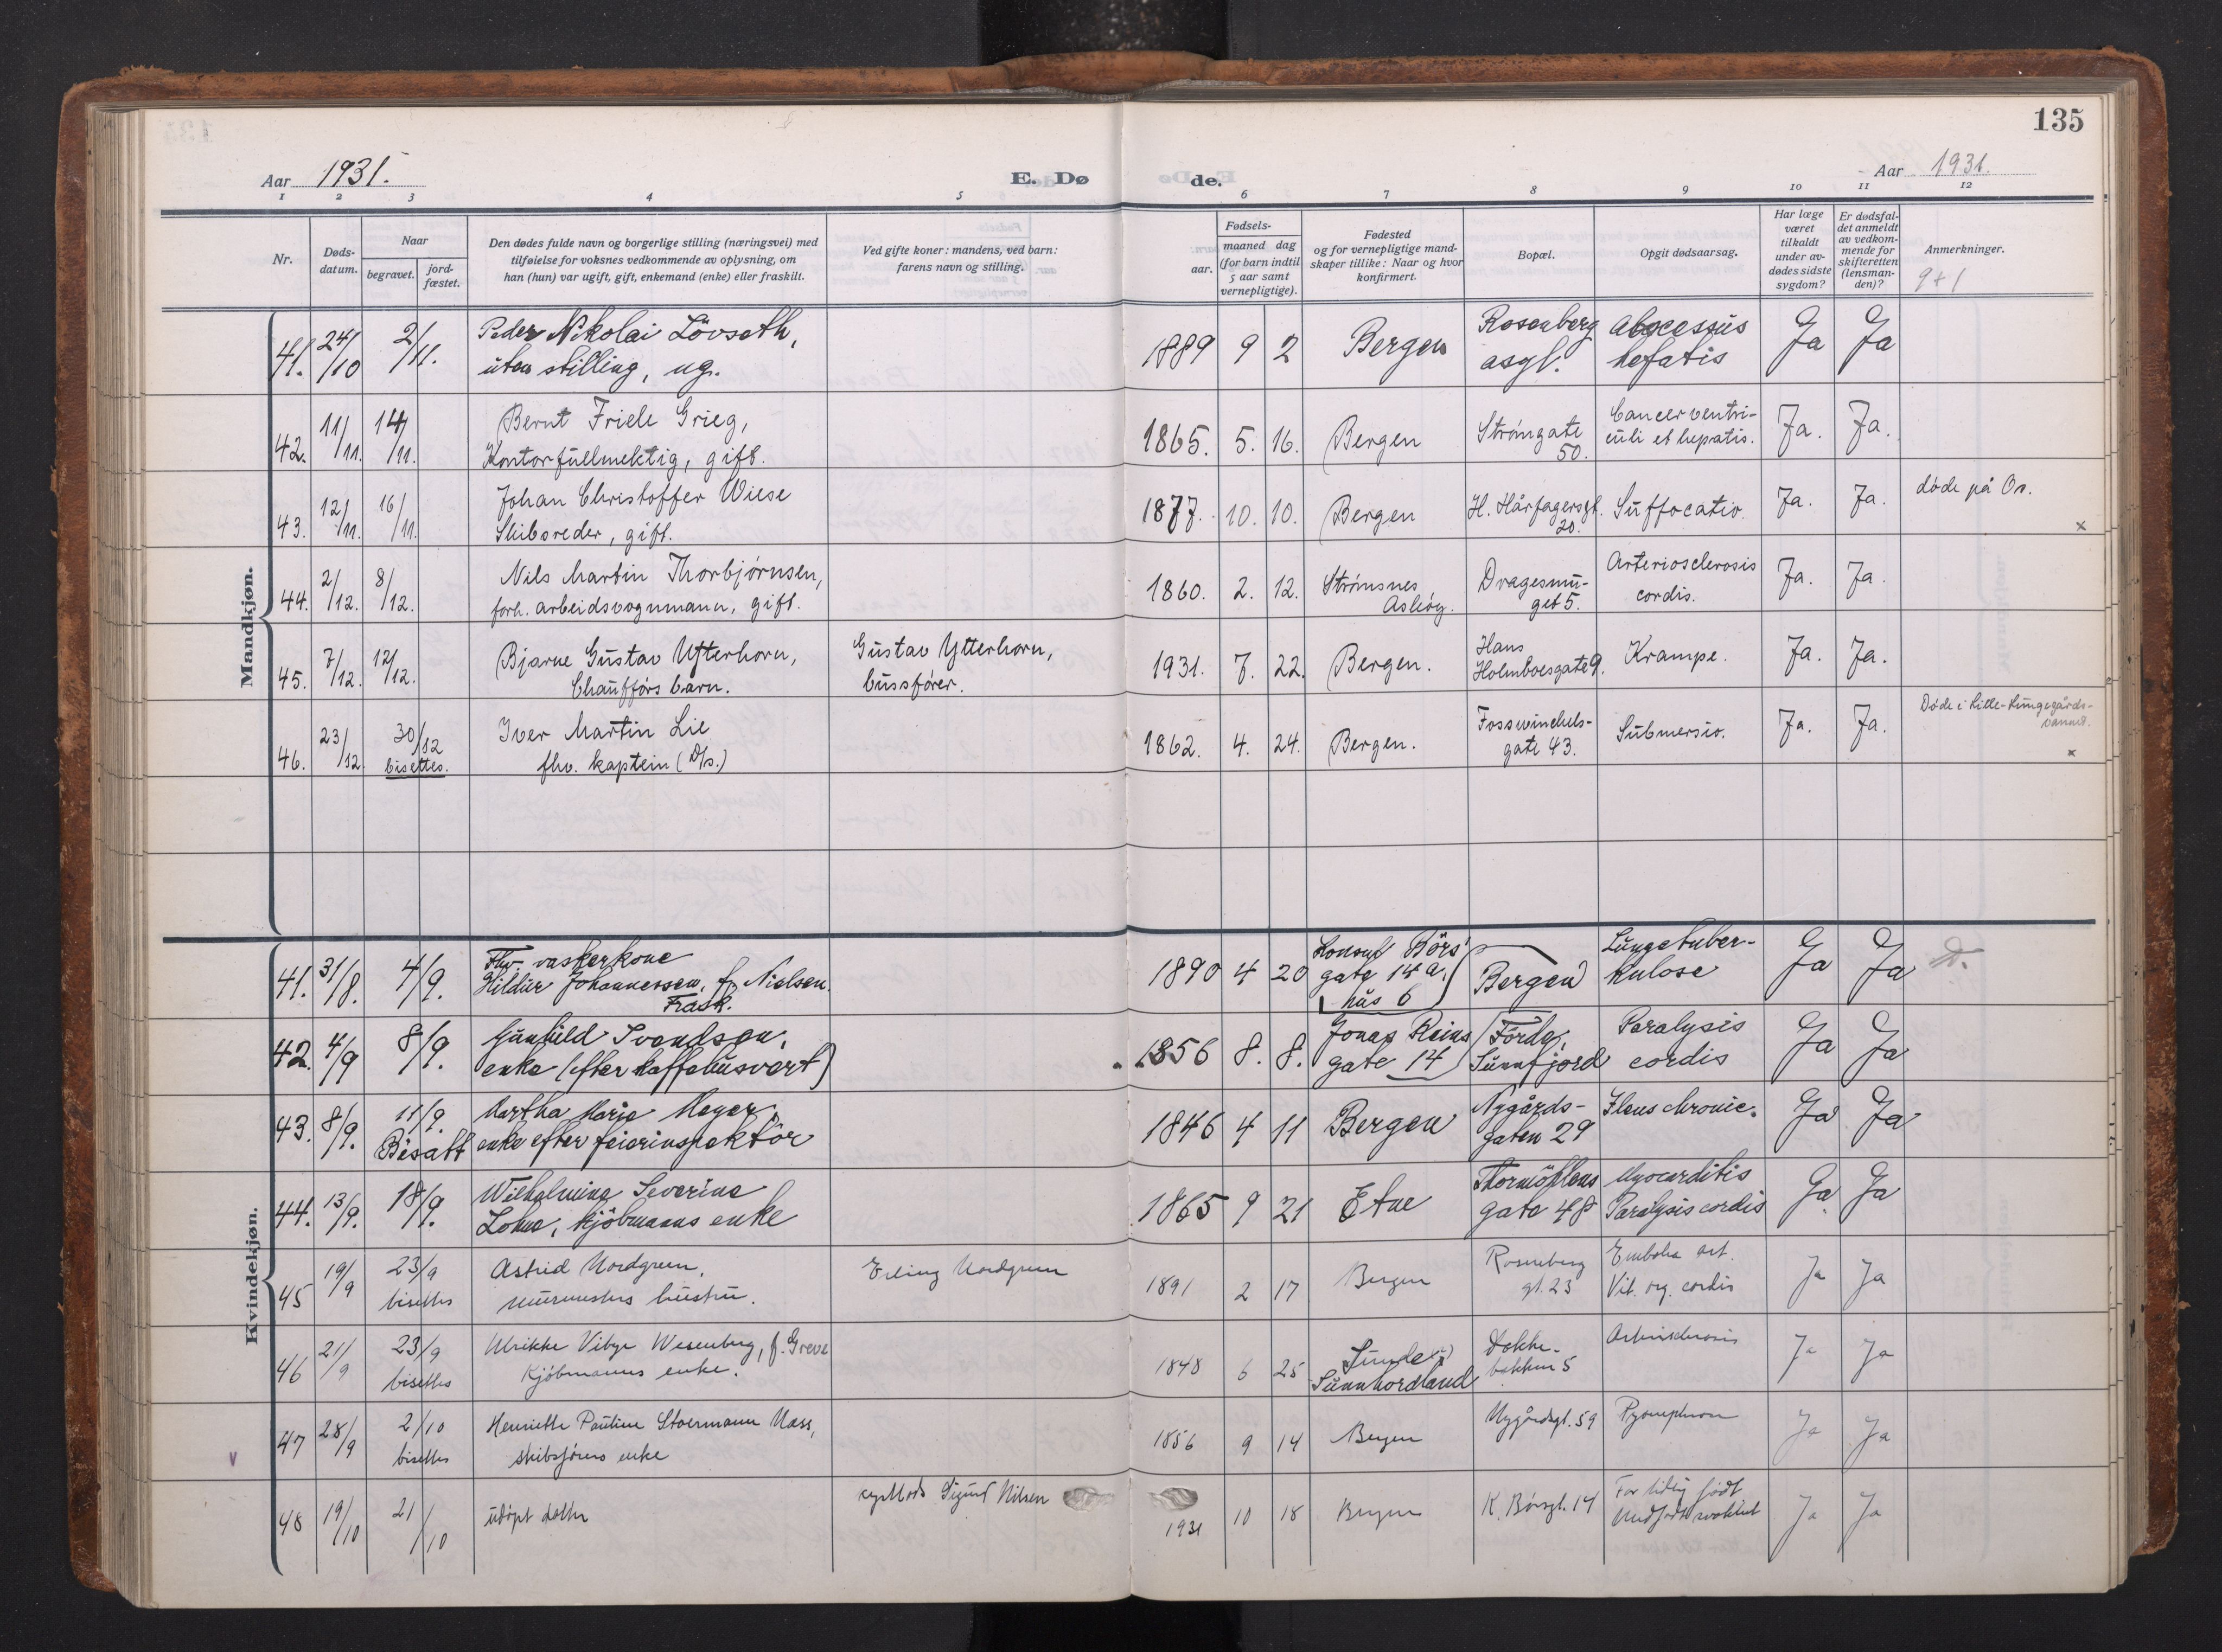 135
Aar 1931.
E. Dø de.
Aar 1931.
1 2 3 4 5 6 7 8 9 10 11 12
Nr.
Døds-
datum.
Naar
begravet.
jord-
fæstet.
Den dødes fulde navn og borgerlige stilling (næringsvei) med
tilføielse for voksnes vedkommende av oplysning, om
han (hun) var ugift, gift, enkemand (enke) eller fraskilt.
Ved gifte koner: mandens, ved barn:
farens navn og stilling.
Fødsels-
aar.
maaned dag
(for barn indtil
5 aar samt
vernepligtige).
Fødested
og for vernepligtige mand-
skaper tillike: Naar og hvor
konfirmert.
Bopæl.
Opgit dødsaarsag.
Har læge
været
tilkaldt
under av-
dødes sidste
sygdom?
Er dødsfal-
det anmeldt
av vedkom-
mende for
skifteretten
(lensman-
den)?
Anmerkninger.
9+1
Mandkjøn.
41. 24/10 2/11. Peder Nikolai Lövseth,
uten stilling, ug.
1889 9 2 Bergen
Rosenberg
asyl.
abscessus
hepatis
Ja Ja
42. 11/11. 14/11. Bernt Friele Grieg,
Kontorfullmektig, gift.
1865. 5. 16. Bergen
Strømgate
50.
Cancer ventri-
culi et hepatis.
Ja. Ja.
43. 12/11. 16/11. Johan Christoffer Wiese
Skibsreder, gift.
1877. 10. 10. Bergen
H. Hårfagersgt.
20.
Suffocatio.
Ja. Ja.
døde på Os.
x
44. 2/12. 8/12. Nils Martin Thorbjørnsen,
forh. arbeidsvognmann, gift.
1860. 2. 12. Strømsnes
Askøy.
Dragesmu-
get 5.
Arteriosclerosis
cordis.
Ja. Ja.
45. 7/12. 12/12. Bjarne Gustav Ytterhorn,
Chaufførs barn.
Gustav Ytterhorn,
bussfører.
1931. 7. 22. Bergen.
Hans
Holmboesgate 9.
Krampe.
Ja. Ja.
46. 23/12 30/12
bisettes.
Iver Martin Lie
fhv. kaptein (D/s.)
1862. 4. 24. Bergen.
Fosswinckels-
gate 43.
Submersio.
Ja. Ja.
Døde i Lille-Lungegårds-
vannd.
x
Kvindekjøn.
41. 31/8. 4/9. Fhv. vaskerkone
Hildur Johannessen, f. Nielsen.
Frask.
1890 4 20
Konsul Börs'
gate 14 a.
hus 6
Bergen
Lungetuber-
kulose
Ja Ja
D.
42. 4/9 8/9. Gunhild Svendsen,
enke (efter kaffehusvert)
1856 8. 8.
Jonas Reins
gate 14
Förde,
Sunnfjord
Paralysis
cordis
Ja Ja
43. 8/9. 11/9.
Bisatt
Martha Marie Meyer,
enke efter feierinspektör
1846 4 11 Bergen
Nygårds-
gaten 29
Ileus chronic.
Ja Ja
44. 13/9. 18/9. Wilhelmine Severine
Lohne, kjöbmanns enke
1865 9 21 Etne
Thormöhlens
gate 48
Myocarditis
Paralysis cordis
Ja Ja
45 19/9 23/9
bisettes
Astrid Nordgreen,
murmesters hustru.
Erling Nordgreen
1891 2 17 Bergen
Rosenberg
gt. 23
Embolia art.
Vit. org. cordis
Ja Ja
46 21/9 23/9
bisettes
Ulrikke Vibye Wesenberg, f. Greve
Kjöbmanns enke.
1848 6 25 Sunde i
Sunnhordland
Dokke-
bakken 5
Arteriosclerosis
Ja Ja
v
47 28/9 2/10
bisettes
Henriette Pauline Stoermann Næss,
skibsførers enke
1856 9 14 Bergen
Nygårdsgt. 59
Pyonephrose
Ja Ja
48 19/10 21/10 udöpt datter
Sigurd Nilsen
1931 10 18 Bergen
K. Börsgt. 14
For tidlig födt
Ja Ja